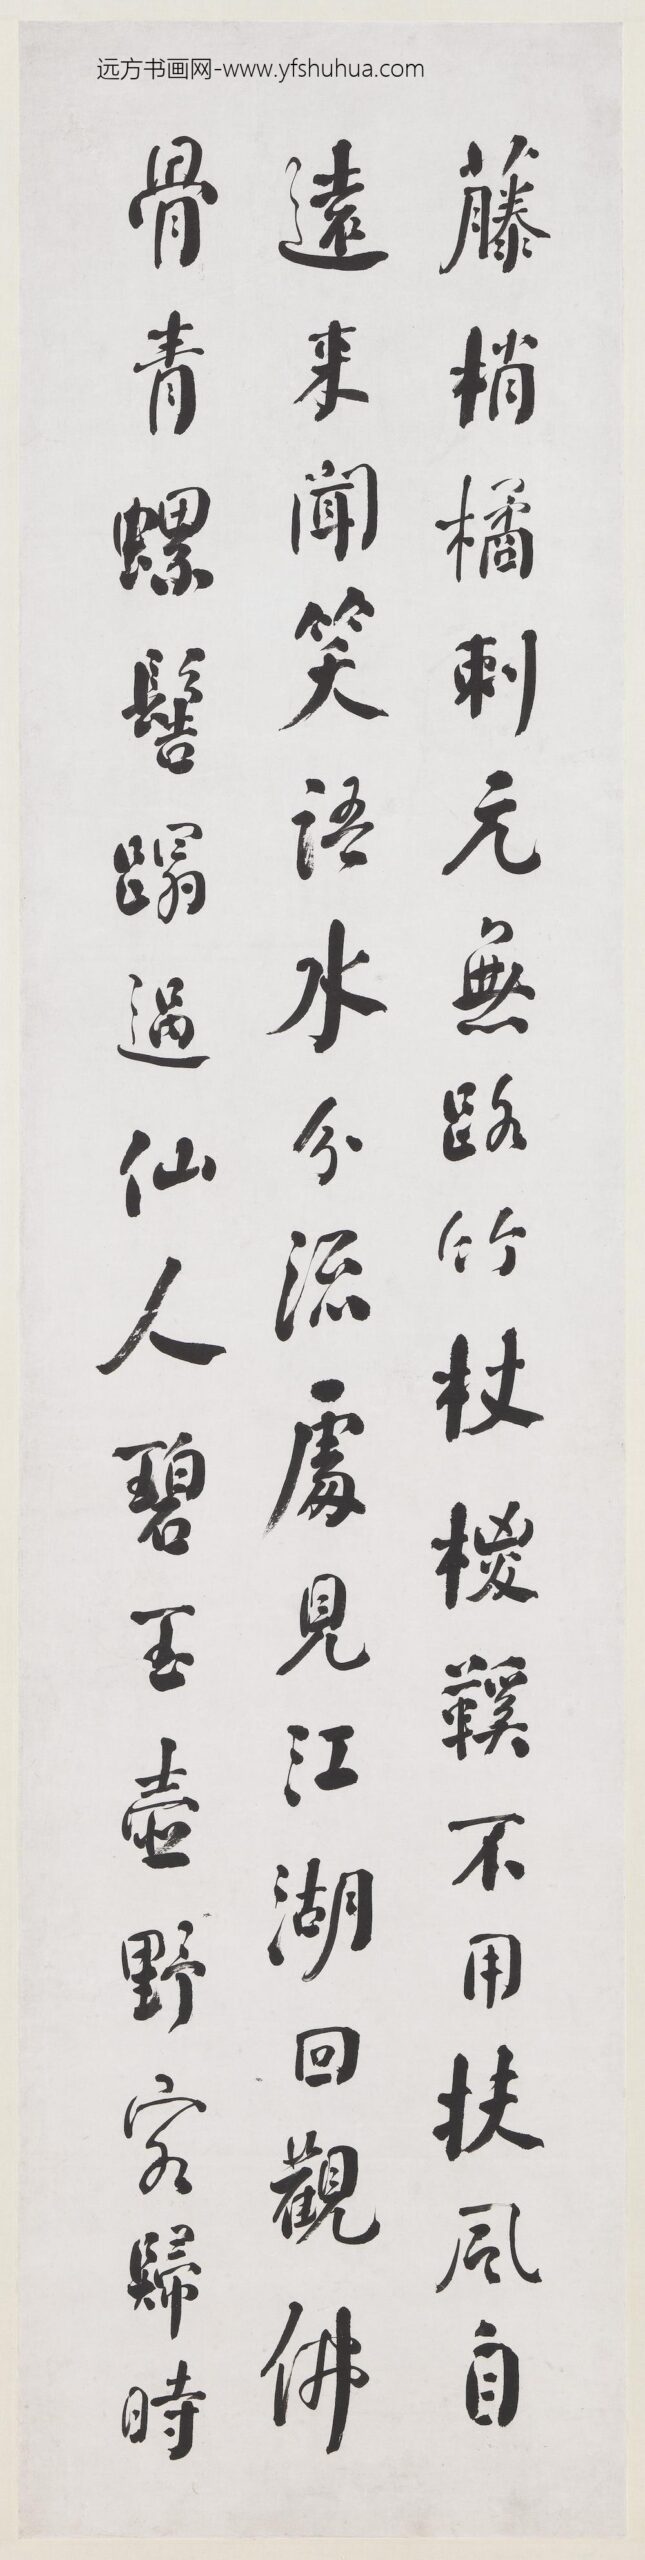 远方书画网-www.yfshuhua.com
藤梢橘刺元無路竹杖椶鞵不用扶風自
遠来聞笑語水分流處見江湖回觀佛
骨青螺髻蹋過仙人碧玉壺野客歸時